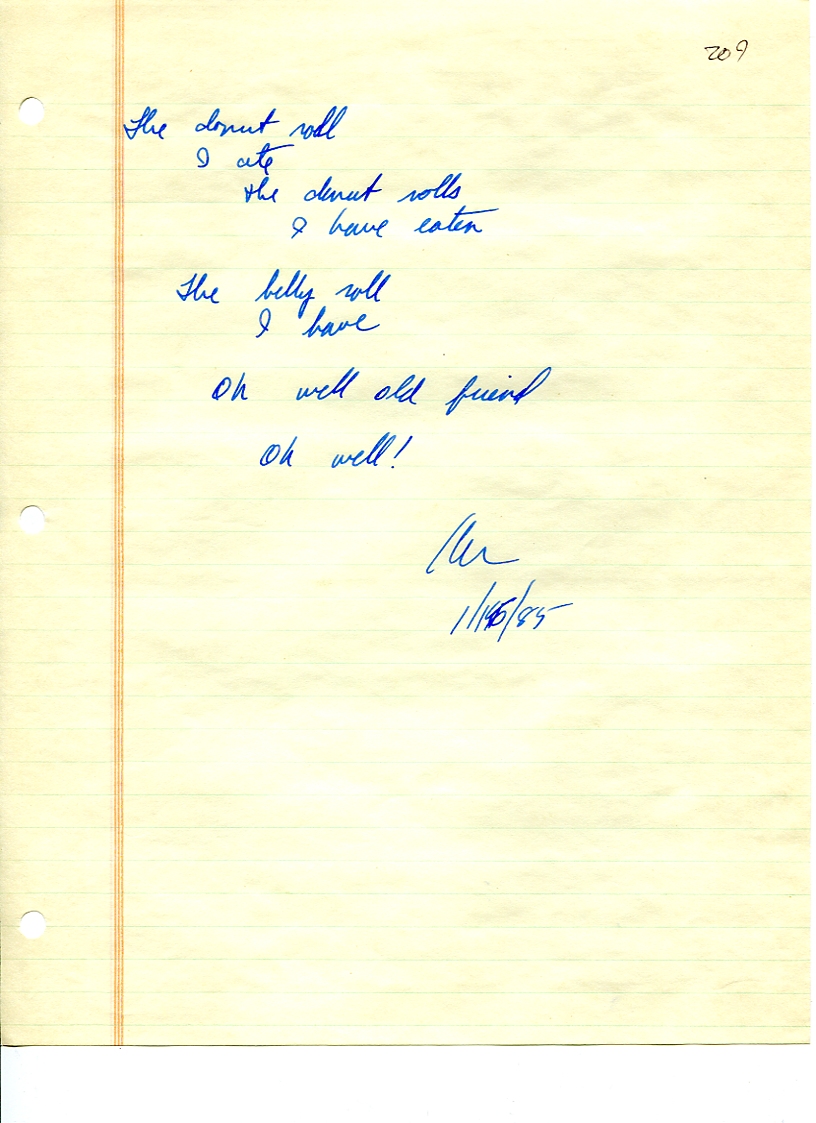 209
The donut roll
I ate
the donut rolls
I have eaten
The belly roll
I have
Oh well old friend
Oh well!